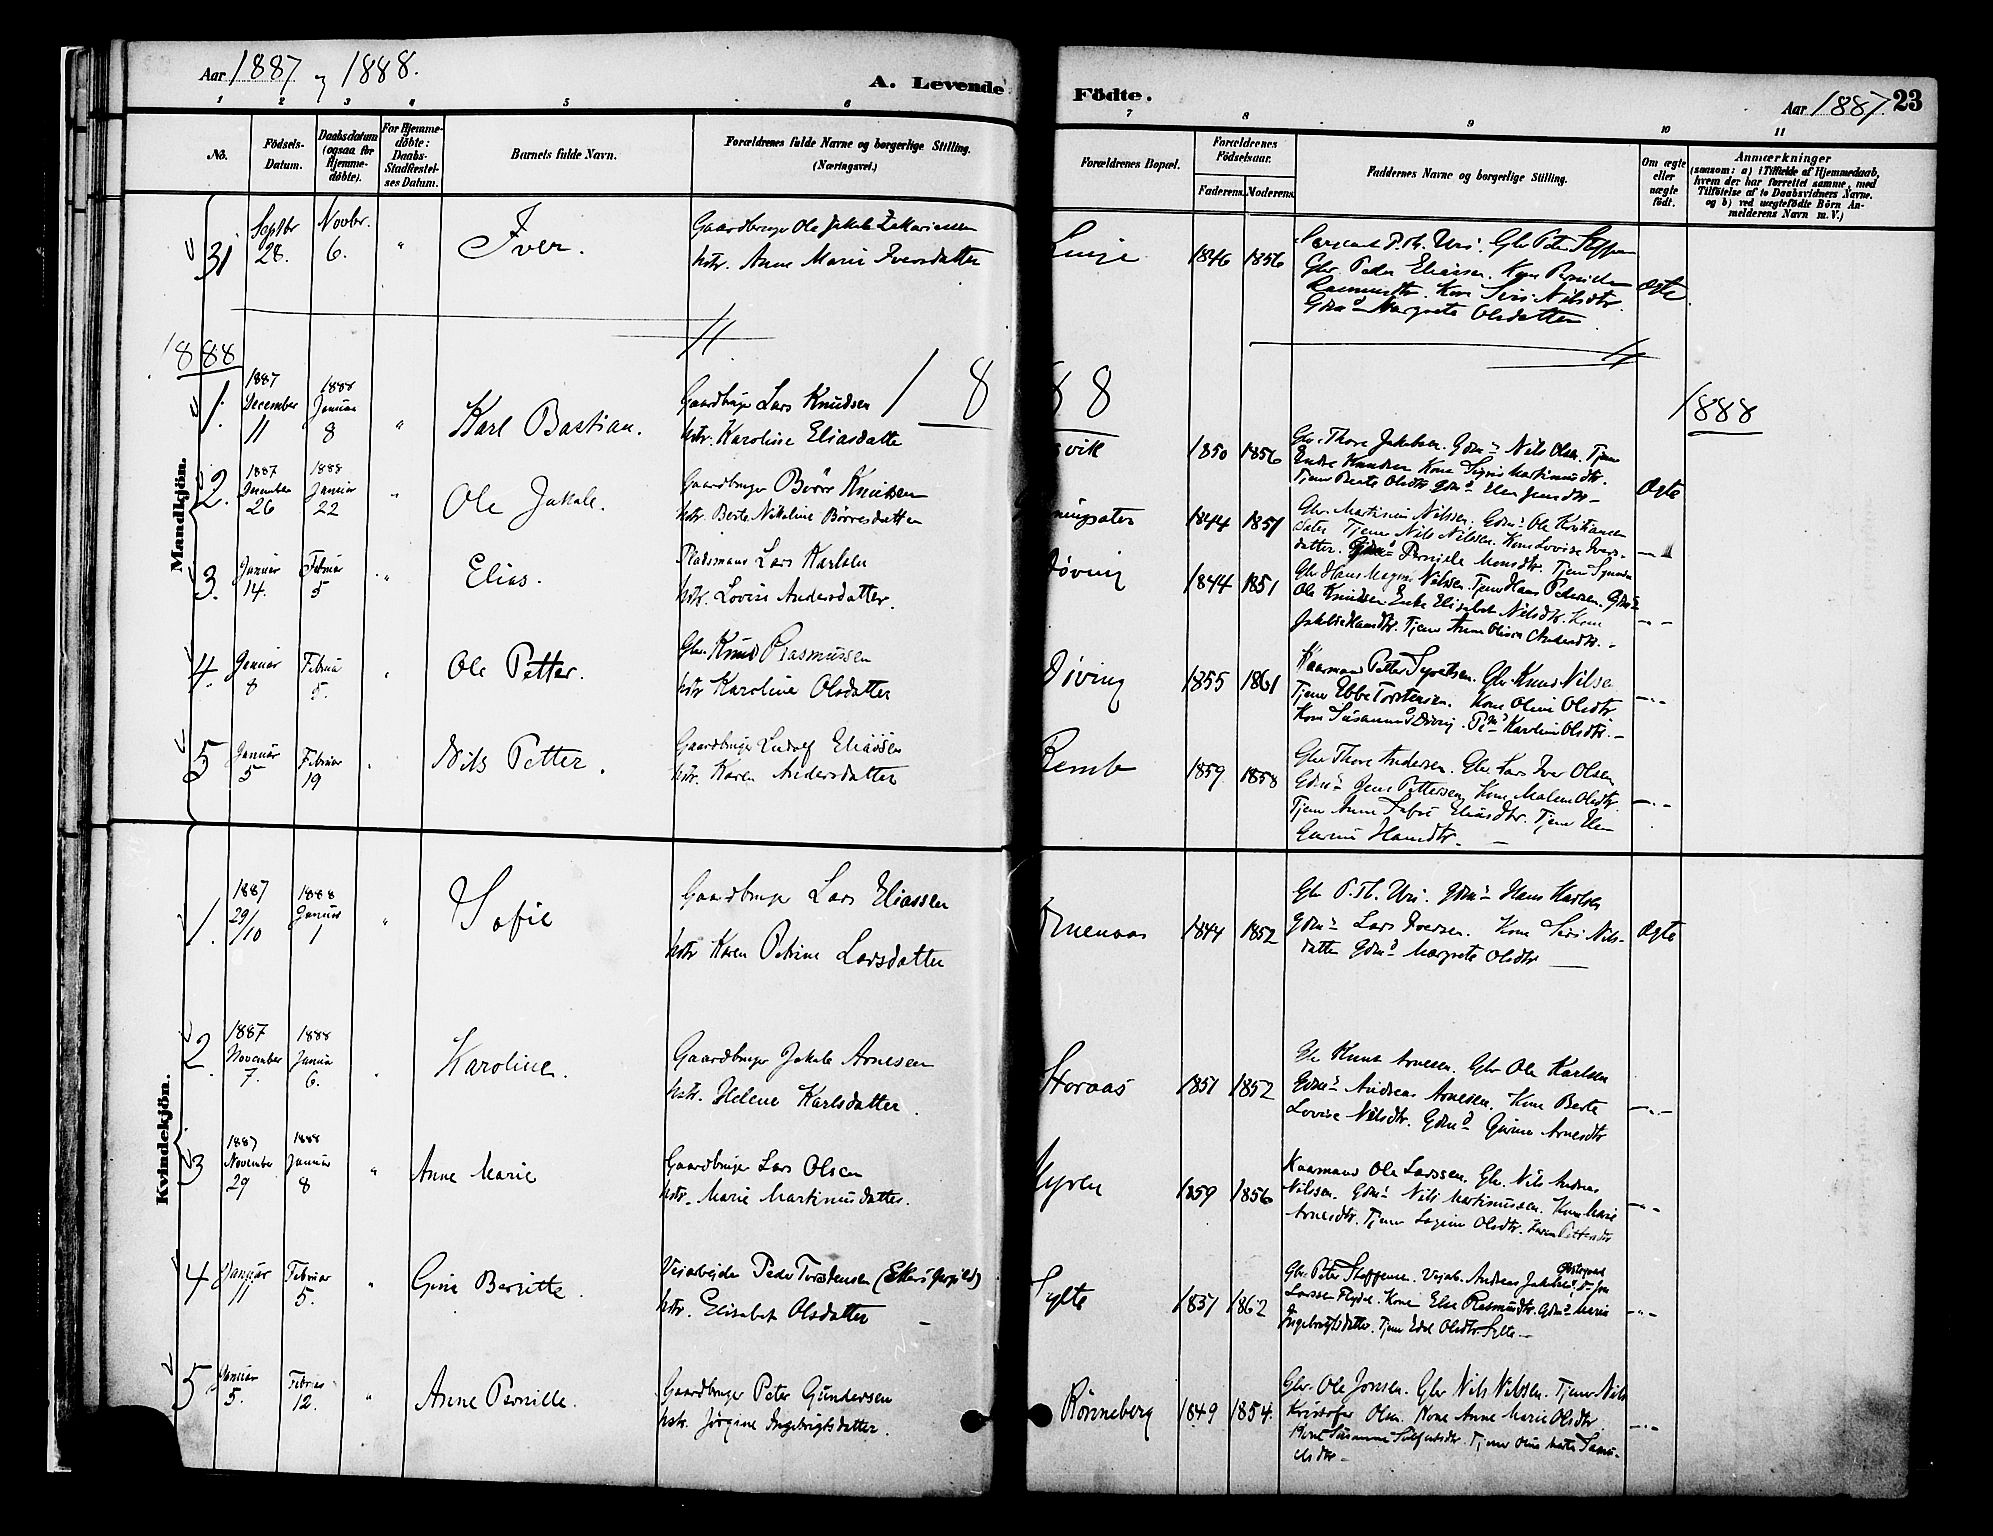 Aar 1887 og 1888.
A. Levende Födte.
Aar 1887. 23
1 2 3 4 5 6 7 8 9 10 11
No.
Födsels-Datum.
Daabsdatum (ogsaa for Hjemme-döbte).
For Hjemme-döbte: Daabs-Stadfæstel-ses Datum.
Barnets fulde Navn.
Forældrenes fulde Navne og borgerlige Stilling. (Næringsvei.)
Forældrenes Bopæl.
Forældrenes Födselsaar.
Faderens. Moderens.
Faddernes Navne og borgerlige Stilling.
Om ægte eller uægte födt.
Anmærkninger
(saasom: a) i Tilfælde af Hjemmedaab,
hvem der har forrettet samme, med
Tilföielse af to Daabsvidners Navne.
og b) ved uægtefödte Börn An-
melderens Navn m. V.)
31 Septbr 28. Novbr. 6. " Iver.
Gaardbruger Ole Jakob Zakariassen
hstr. Anne Marie Iversdatter
Linge 1846 1856
P. Th. Uri. Gbr Peter Steffensen
Gbr. Peder Eliassen. Kone Pernille
Rasmusdtr. Kone Siri Nilsdtr.
Margrete Olsdatter.
ægte
1888
1888
1888
Mandkjön.
1. 1887 December 11 1888 Januar 8 " Karl Bastian.
Gaardbruger Lars Knudsen
hstr. Karoline Eliasdatter
svik 1850 1856
Gbr. Thore Jakobsen. Gdmn Nils Olsen. Tjener
Endre Knudsen Kone Sigrid Martinusdtr.
Tjener Berte Olsdtr
Ægte
2. 1887 December 26 1888 Januar 22 " Ole Jakob.
Gaardbruger Börre Knudsen
hstr. Berte Nikoline Börresdatter
ningsæter 1844 1851
Gbr. Martinus Nilssen. Gdmn Ole Kristiansen
Tjener Nils Nilssen. Kone Lovise Ivers-
datter. Pernille Monsdtr. Tjener
— " —
3. Januar 14. Februar 5 " Elias.
Pladsmand Lars Karlsen
hstr. Lovise Andersdatter.
Döving 1844 1851
Gbr Hans Magnus Nilsen. Tjener Hans Pedersen.
Ole Knudsen Enke Elisabet Nilsdtr. Kone
Hansdtr. Tjener Anne Olivie
— " —
4. Januar 8 Februar 5. " Ole Petter.
Gbr. Knud Rasmussen
hstr Karoline Olsdatter
Döving 1855 1861
Kaarmand Petter Gbr. Knud Nilsen
Tjener Ebbe Torstensen. Kone Oline Olsdtr
Kone Susanne Döving. Karoline Olsdtr. —
— " —
5 Januar 5 Februar 19 " Nils Petter.
Gaardbruger Ludolf Eliassen
hstr. Karen Andersdatter
Remb 1859 1858
Gbr Thore Andersen. Gbr Lars Iver Olsen
Gdmn Jens Pettersen Kone Malene Olsdtr.
Tjener Anne Sofie Eliasdtr. Tjener Elen
Gurine Hansdtr. —
— " —
Kvindekjön.
1. 1887 29/10 1888 Januar 1 " Sofie
Gaardbruger Lars Eliassen
hstr Karen Petrine Larsdatter
1844 1852
Gbr P. Th. Uri. Gdmn Hans Karlsen
Gdmn Lars Iversen. Kone Siri Nils-
datter Margrete Olsdtr —
Ægte
2. 1887 November 7. 1888 Januar 6. " Karoline.
Gaardbruger Jakob Arnesen
hstr. Helene Karlsdatter.
Storaas 1851 1852
Gbr Knut Arnesen. Gbr Ole Karlsen
Gdmn Andreas Arnesen. Kone Berte
Lovise Nilsdtr. Gurine Arnesdtr
— " —
3 1887 November 29 1888 Januar 8 " Anne Marie
Gaardbruger Lars Olsen
hstr. Marie Martinusdatter.
Myren 1859 1856
Kaarmand Ole Larssen. Gbr. Nils Andreas
Nilssen. Gdmn Nils Martinussen. Kone Marie
Arnesdtr. Tjener Olsdtr.
— " —
4 Januar 11 Februar 5. " Gine Beritte.
Veiarbeider Peder Torstensen
hstr. Elisabet Olsdatter —
Sylte 1837 1862
Gbr. Peter Steffensen. Veiarb. Andreas Jakobsen
Larssen Flydal. Kone Else Rasmusdtr. Marie
Ingebrigtsdatter. Tjener Olsdtr Sylte —
— " —
5 Januar 5. Februar 12. " Anne Pernille.
Gaardbruger Peter Gundersen
hstr. Jörgine Ingebrigtsdatter.
Rönneberg 1849 1854.
Gbr. Ole Jonsen. Gbr Nils Nilssen. Tjener Nils
Kristofer Olsen. Kone Anne Marie Olsdtr
Kone Susanne Tjener
— " —